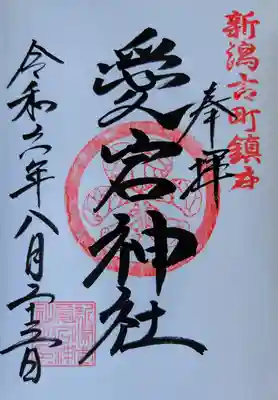 新潟古町鎮守
奉拝
愛宕神社
令和六年八月二十三日